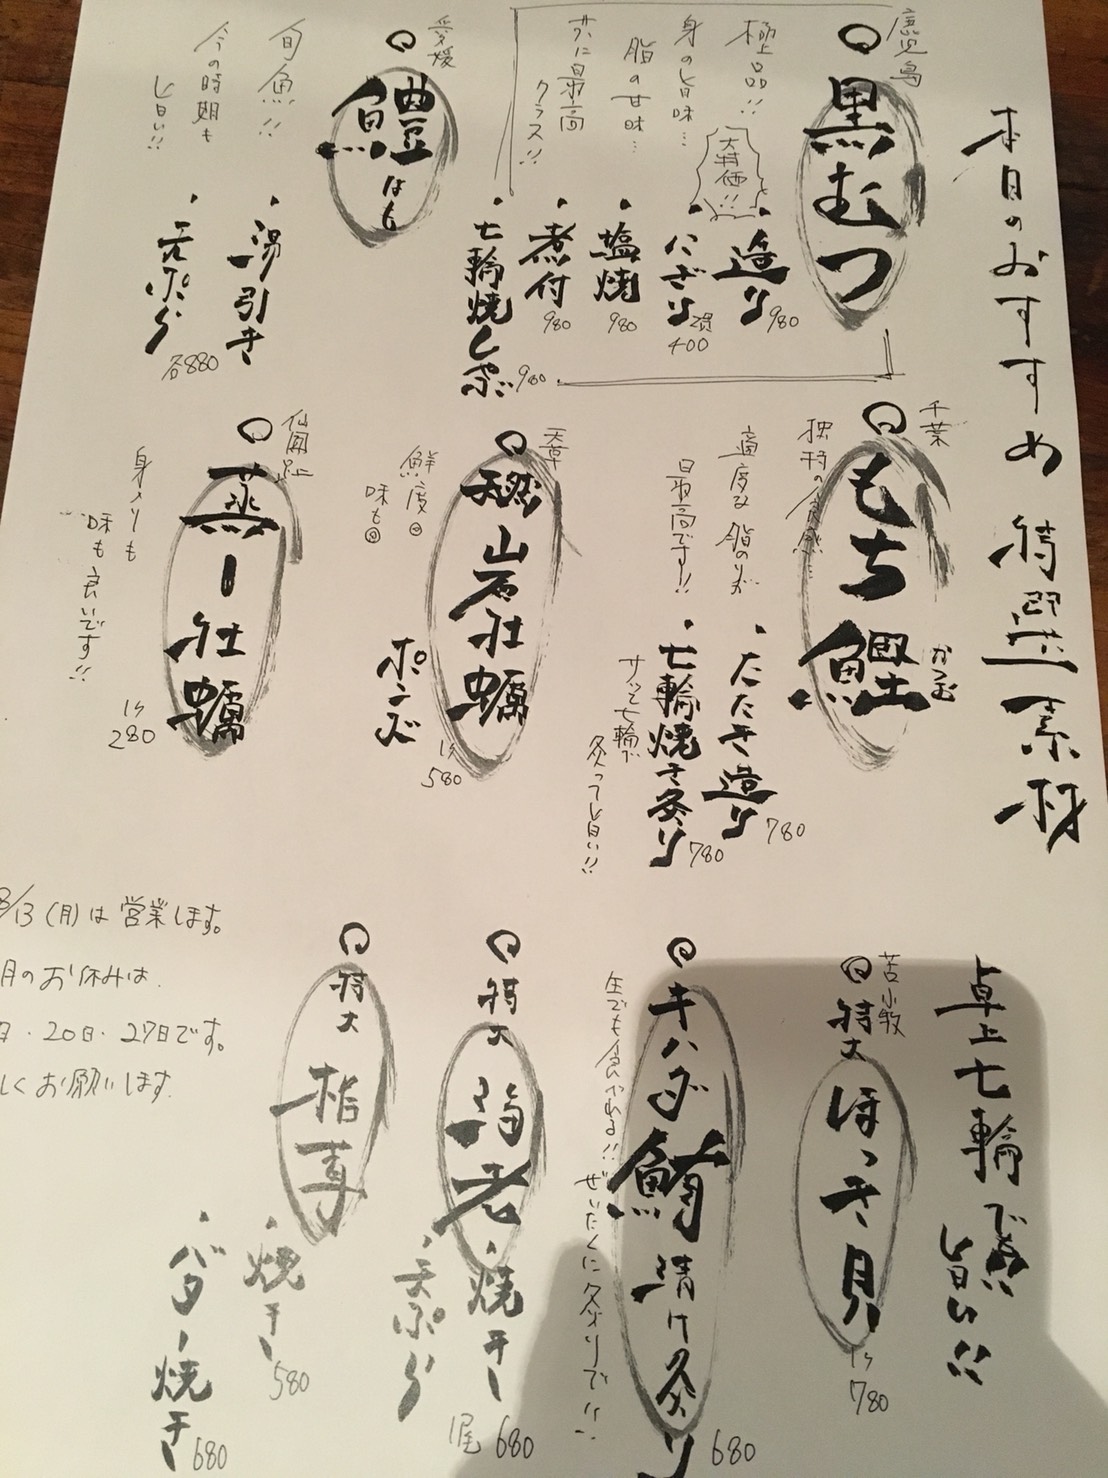 本日のおすすめ 特選素材
鹿児島
黒むつ
極上品!!
身の旨味…
脂の甘味…
共に最高
クラス!!
大特価!!
・造り 980
・にぎり 2貫 400
・塩焼 980
・煮付 980
・七輪焼しゃぶ 980
愛媛
鱧はも
旬魚!!
今の時期も
旨い!!
・湯引き
・天ぷら
各880
千葉
もち鰹
かつお
独特の食感…
適度な脂のりが
最高です!!
・たたき造り 780
・七輪焼き炙り 780
サッと七輪で
炙って旨い!!
天草
天然岩牡蠣
鮮度◎
味も◎
ポンズ
1ケ 580
仙鳳趾
蒸し牡蠣
身入りも
味も良いです!!
1ケ 280
卓上七輪で焼
旨い!!
苫小牧
特大 ほっき貝
1ケ 780
キハダ鮪漬け炙り 680
生でも食べれる!!
ぜいたくに炙りで!!
特大 海老
・焼き
・天ぷら
1尾 680
特大 椎茸
・焼き 580
・バター焼き 680
8/13(月)は営業します。
月のお休みは
日・20日・27日です。
しくお願いします。